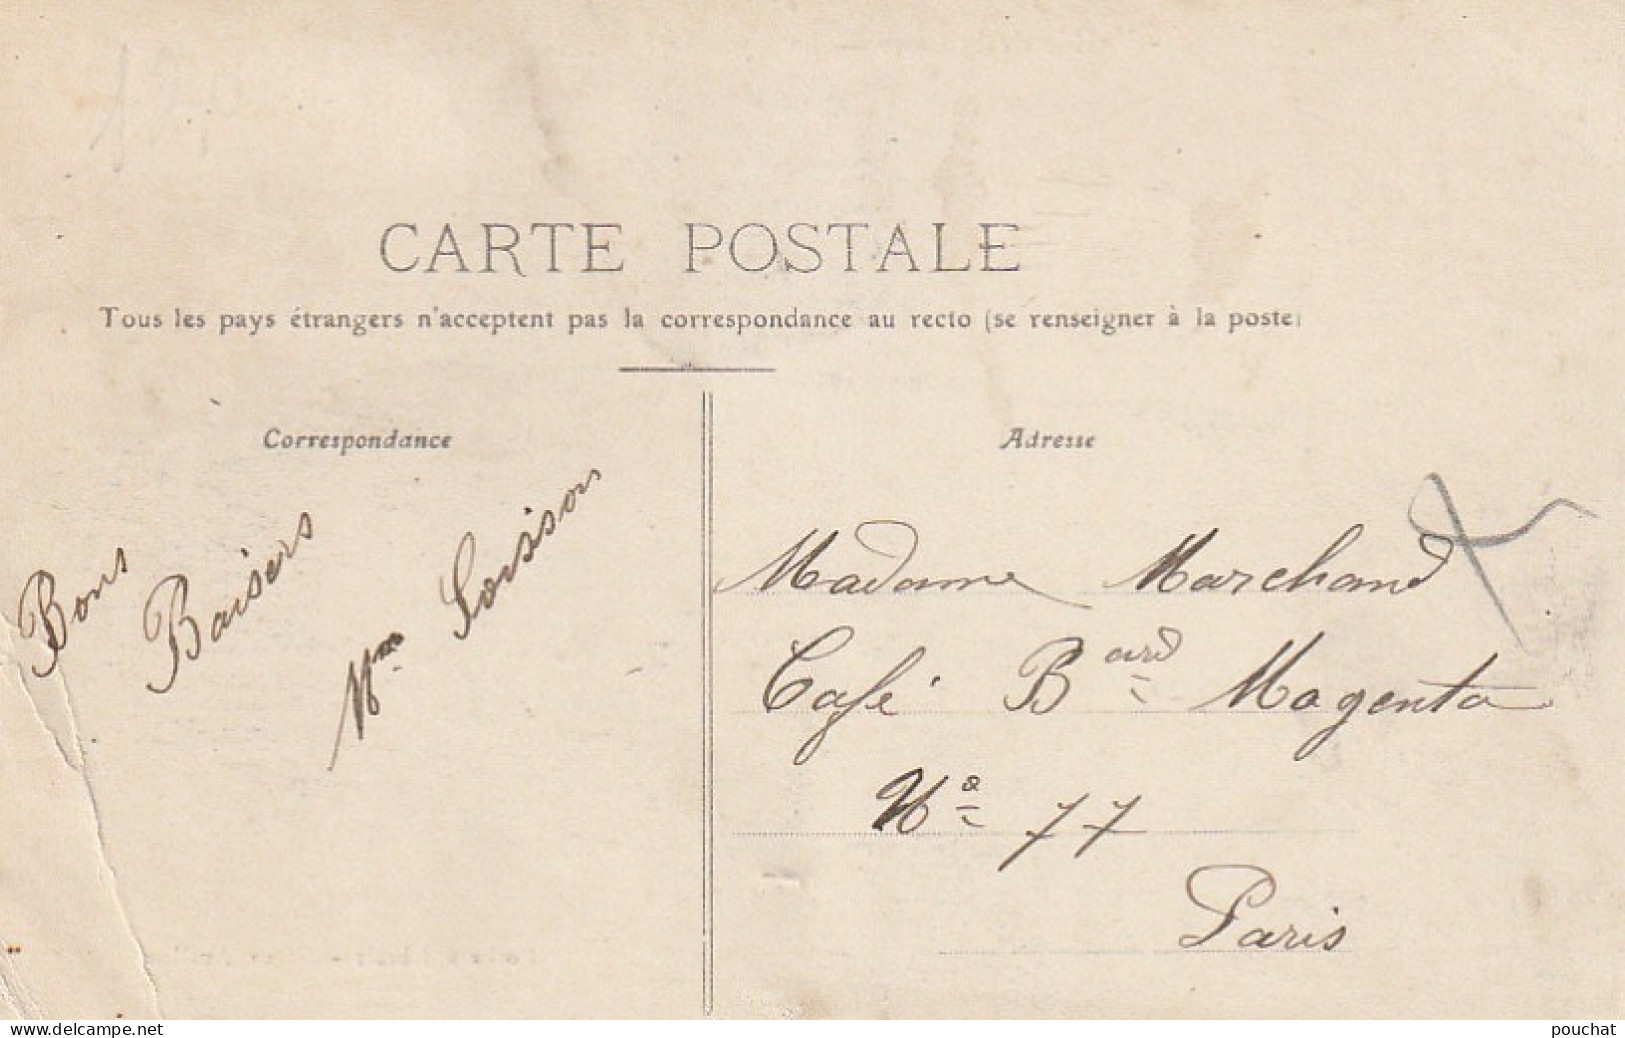 CARTE POSTALE
Tous les pays étrangers n'acceptent pas la correspondance au recto (se renseigner à la poste)
Correspondance
Bons
Baisers
Mme Loisson
Adresse
Madame Marchand
Café Bard Magenta
No 77
Paris
www.delcampe.net
pouchat